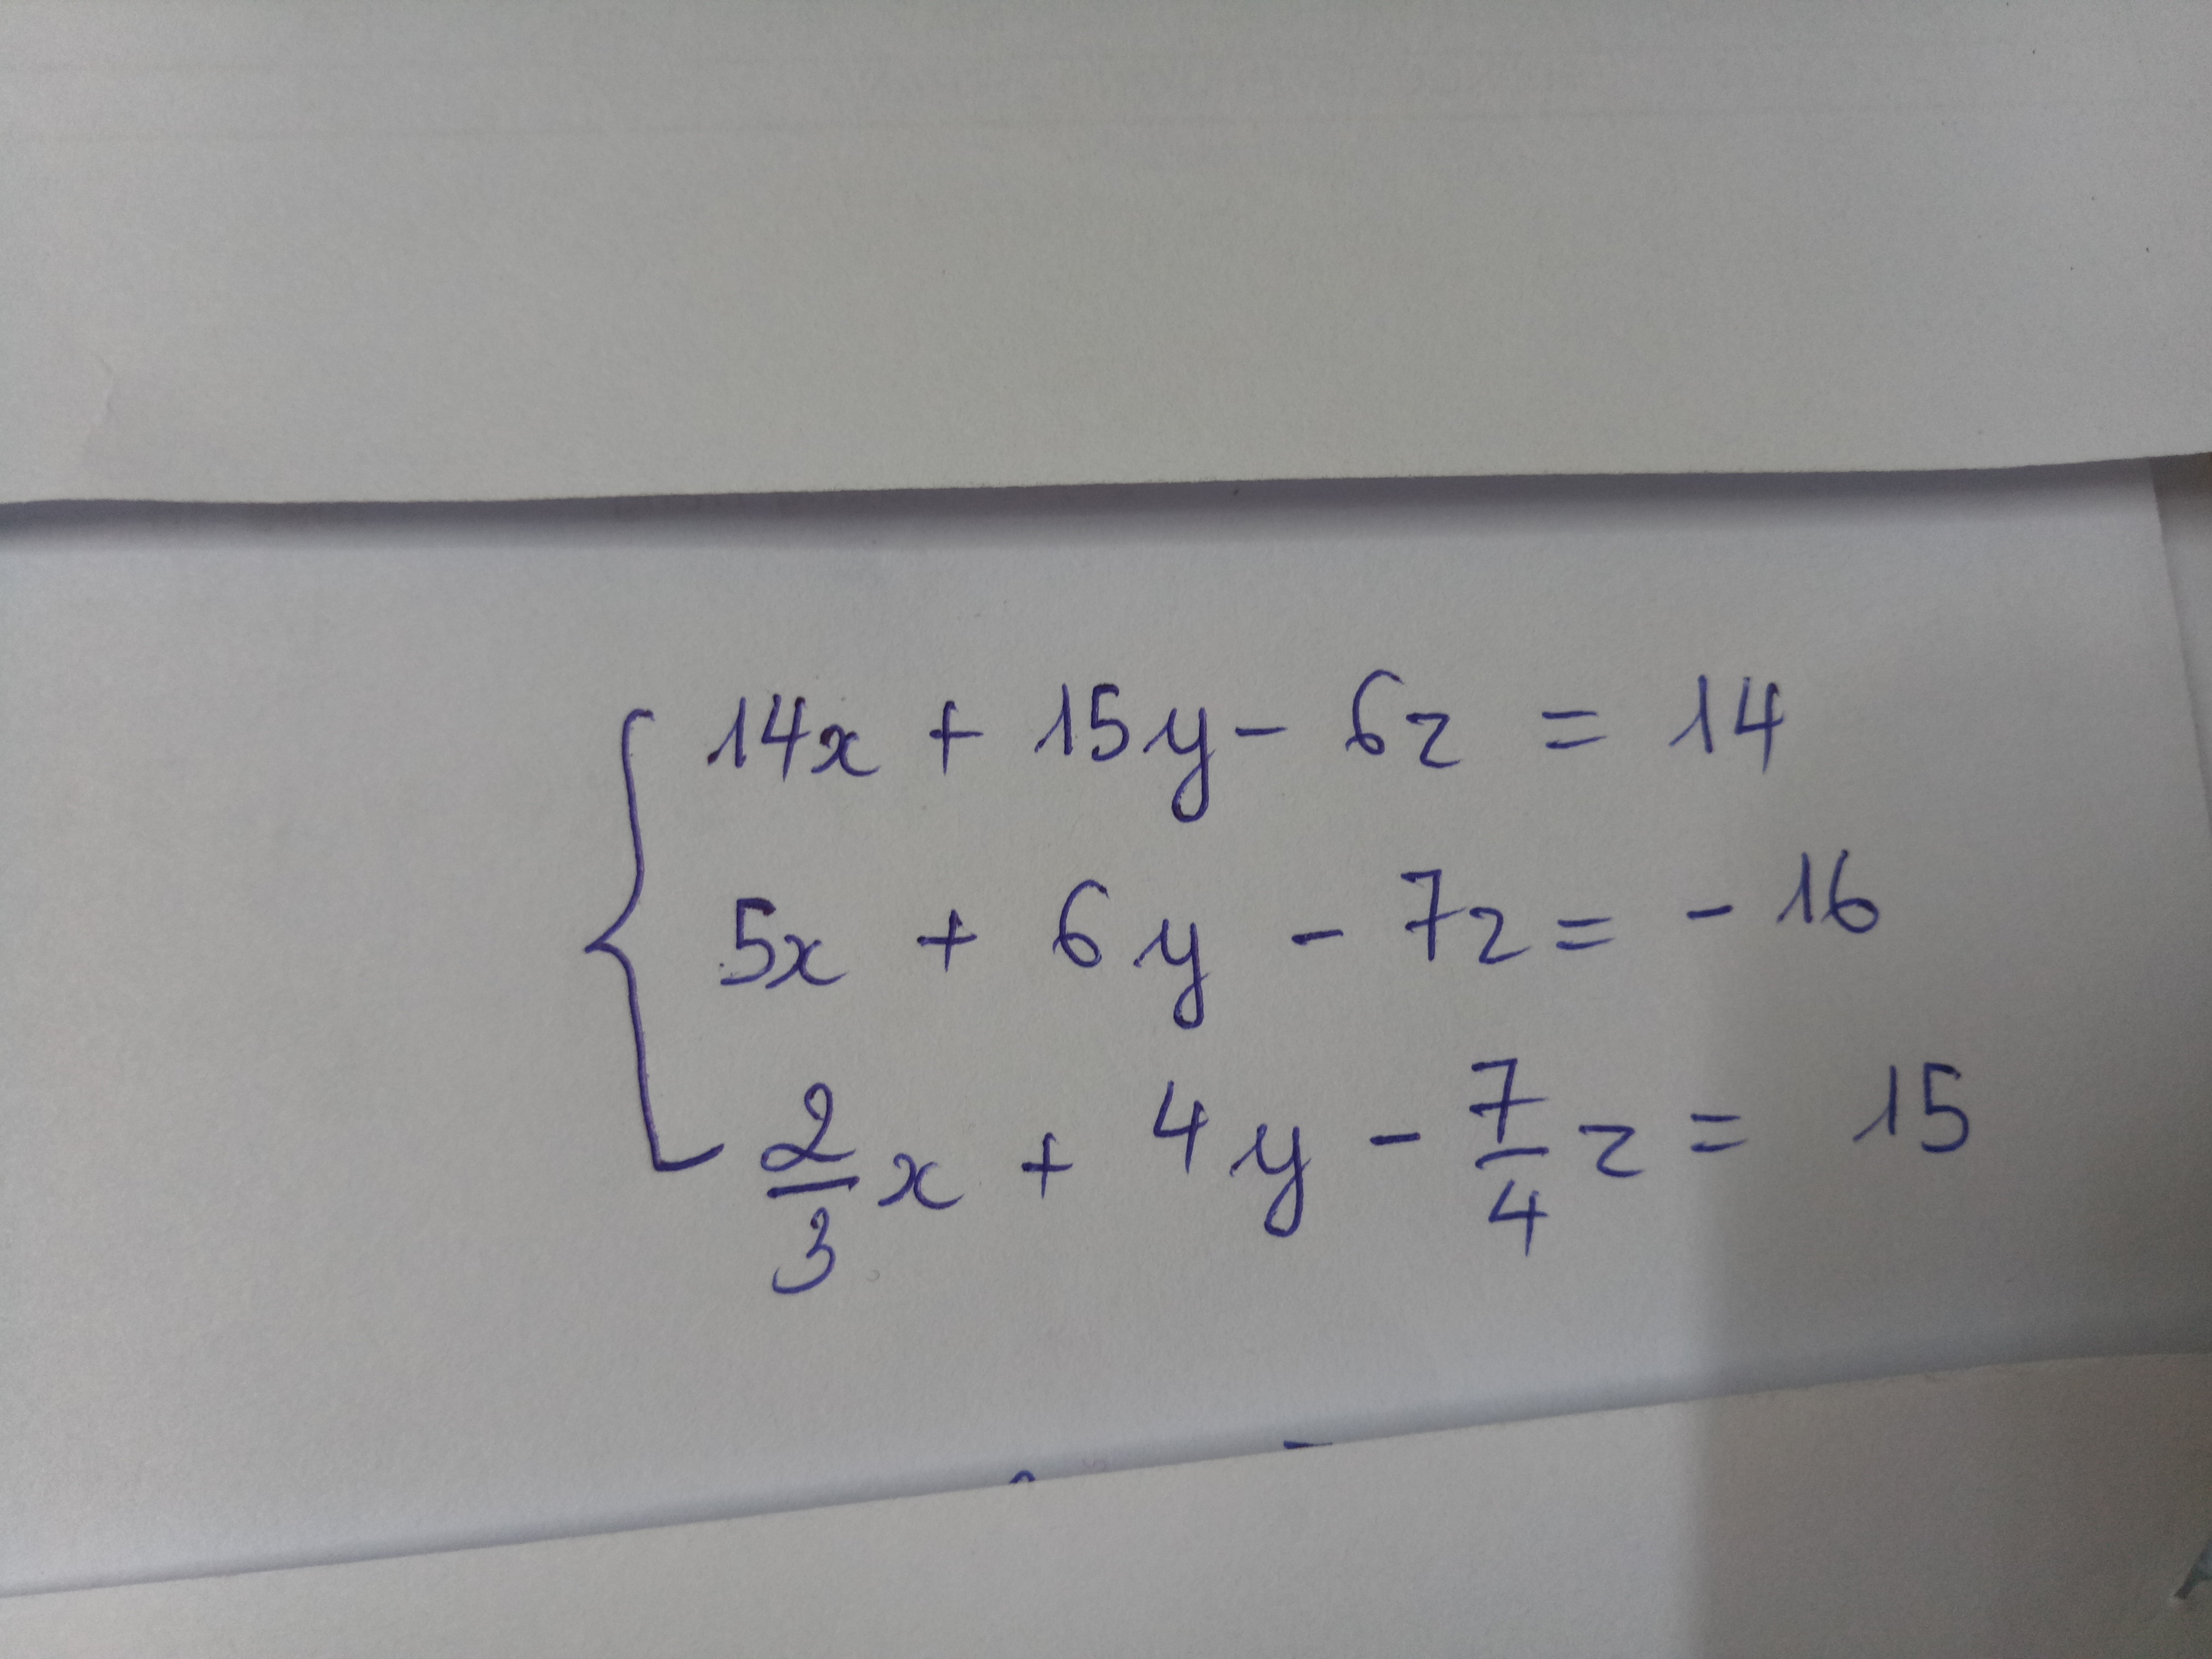 14x + 15y - 6z = 14
5x + 6y - 7z = - 16
2/3 x + 4y - 7/4 z = 15